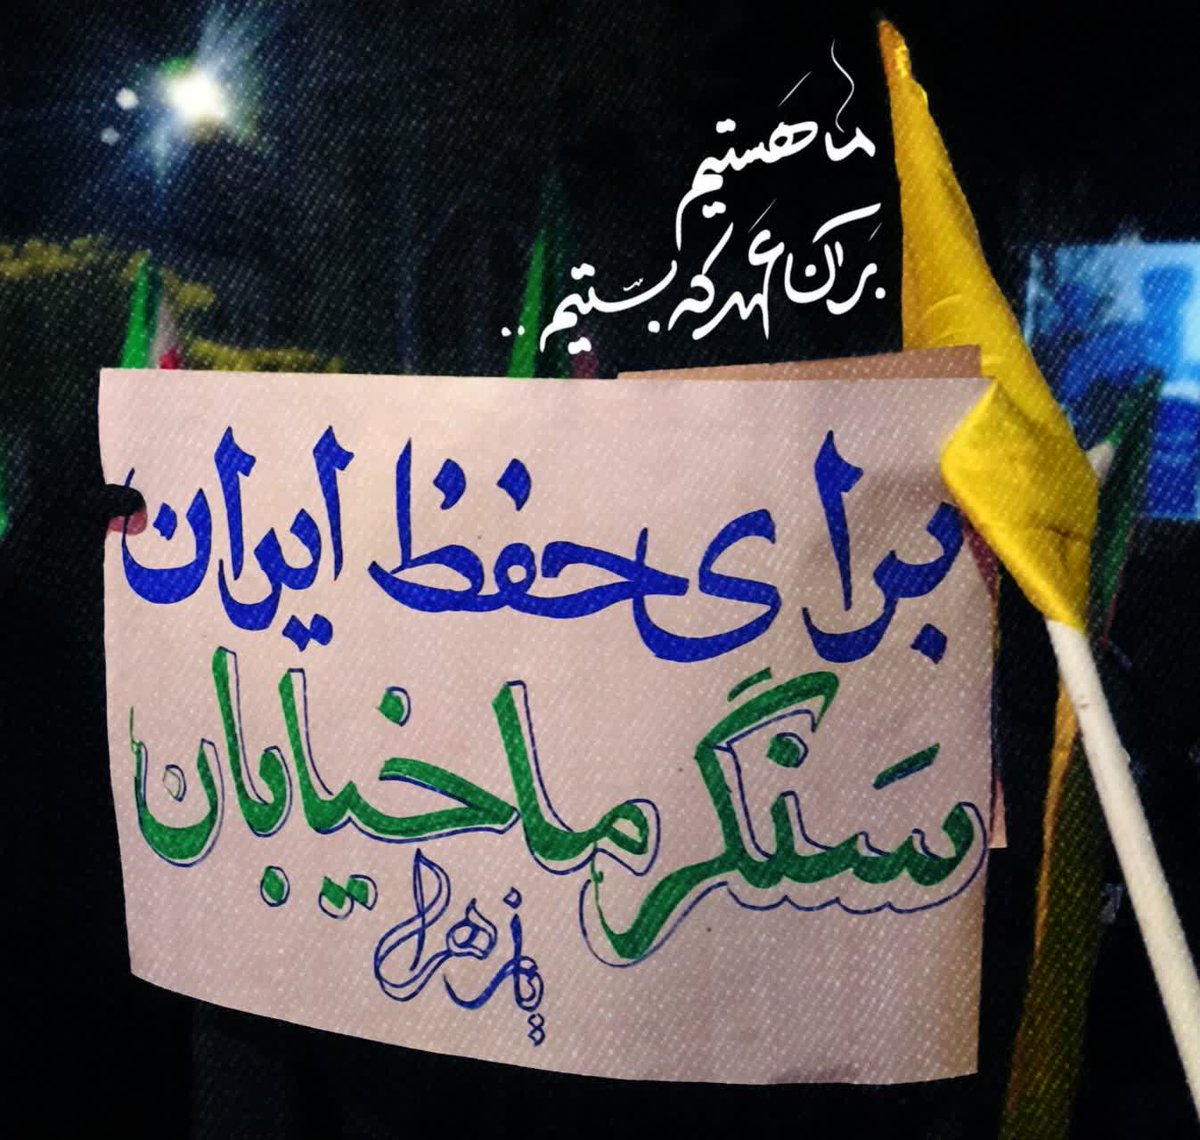 ما هستیم
بر آن عهد که بستیم..
برای حفظ ایران
سنگر ما خیابان
یا زهرا